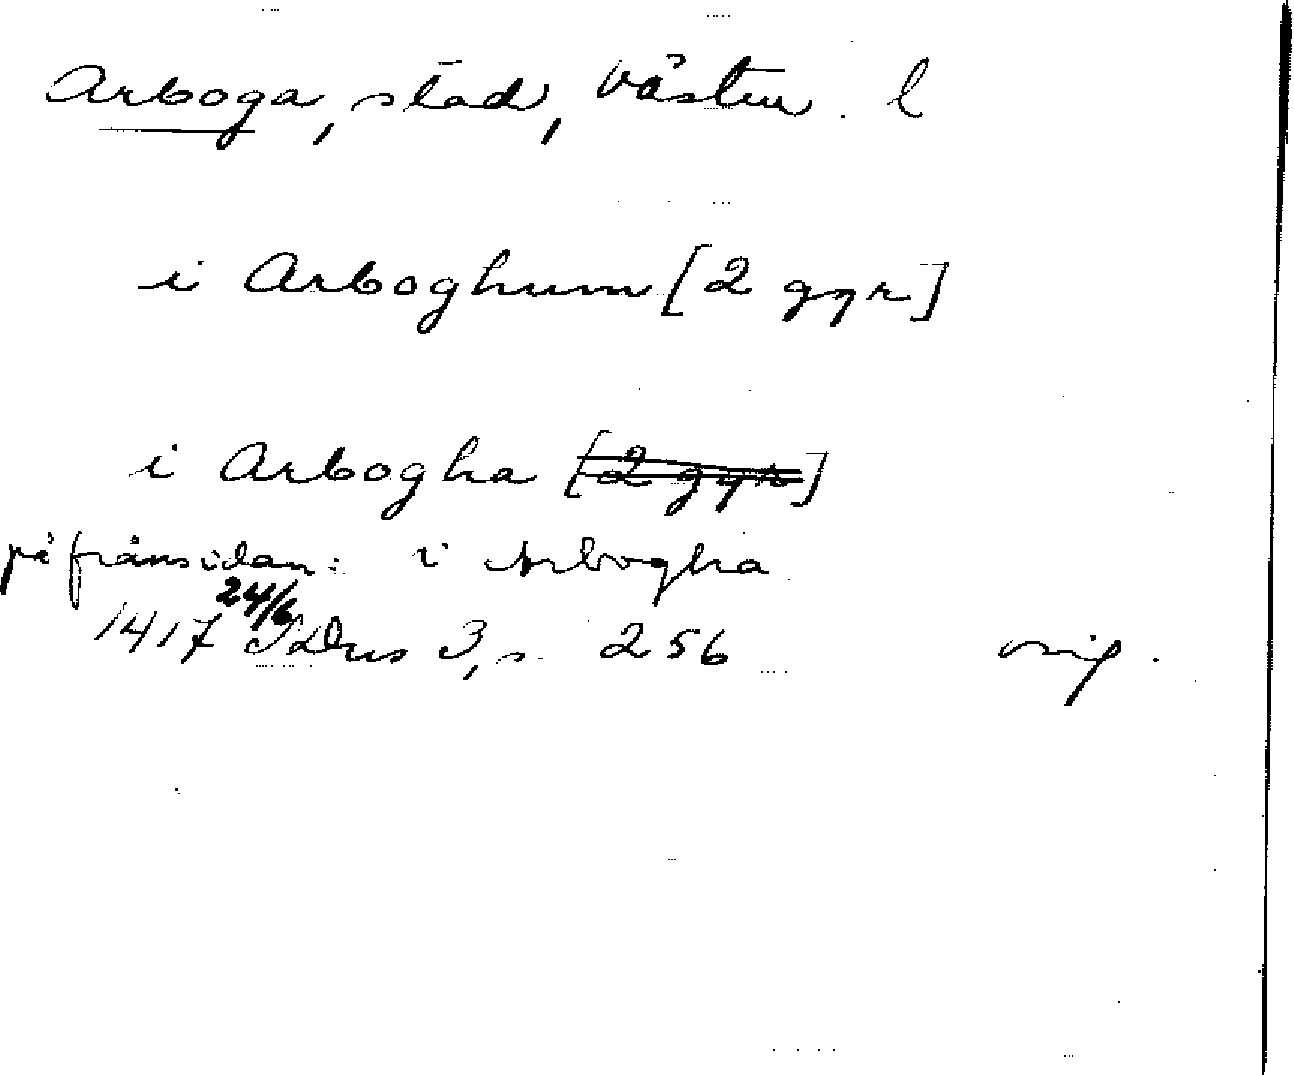 Arboga, stad, Västm. l
i Arboghum [2 ggr]
i Arbogha [2 ggr]
på frånsidan: i Arbogha
1417 24/6 SDns 3, s. 256 orig.